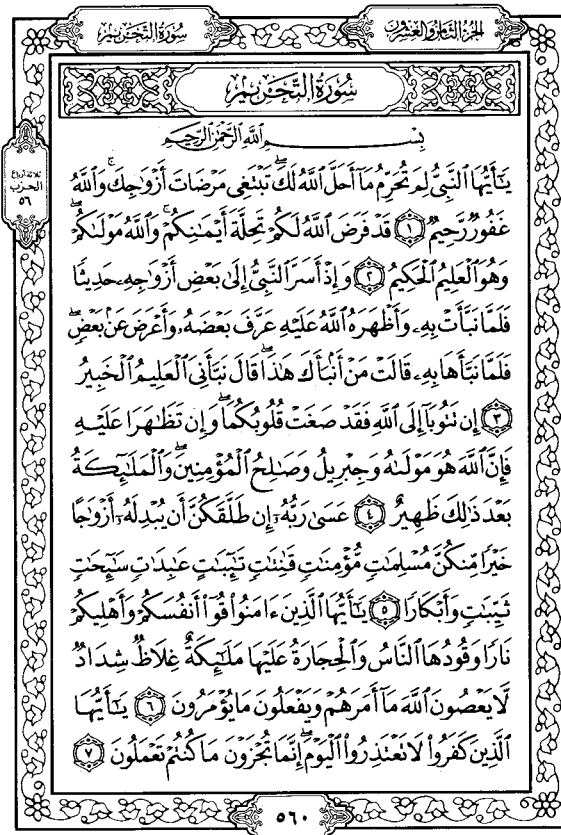 سُورَةُ التَّحْرِيمِ
الجُزْءُ الثَّامِنُ وَالعِشْرُونَ
سُورَةُ التَّحْرِيمِ
بِسْمِ اللَّهِ الرَّحْمَٰنِ الرَّحِيمِ
ثلاثة أرباع
الحزب
٥٦
يَٰٓأَيُّهَا ٱلنَّبِيُّ لِمَ تُحَرِّمُ مَآ أَحَلَّ ٱللَّهُ لَكَۖ تَبْتَغِى مَرْضَاتَ أَزْوَٰجِكَۚ وَٱللَّهُ
غَفُورٌ رَّحِيمٌ ۝١ قَدْ فَرَضَ ٱللَّهُ لَكُمْ تَحِلَّةَ أَيْمَٰنِكُمْۚ وَٱللَّهُ مَوْلَىٰكُمْۖ
وَهُوَ ٱلْعَلِيمُ ٱلْحَكِيمُ ۝٢ وَإِذْ أَسَرَّ ٱلنَّبِيُّ إِلَىٰ بَعْضِ أَزْوَٰجِهِۦ حَدِيثًا
فَلَمَّا نَبَّأَتْ بِهِۦ وَأَظْهَرَهُ ٱللَّهُ عَلَيْهِ عَرَّفَ بَعْضَهُۥ وَأَعْرَضَ عَنۢ بَعْضٍۖ
فَلَمَّا نَبَّأَهَا بِهِۦ قَالَتْ مَنْ أَنۢبَأَكَ هَٰذَاۖ قَالَ نَبَّأَنِىَ ٱلْعَلِيمُ ٱلْخَبِيرُ
۝٣ إِن تَتُوبَآ إِلَى ٱللَّهِ فَقَدْ صَغَتْ قُلُوبُكُمَاۖ وَإِن تَظَٰهَرَا عَلَيْهِ
فَإِنَّ ٱللَّهَ هُوَ مَوْلَىٰهُ وَجِبْرِيلُ وَصَٰلِحُ ٱلْمُؤْمِنِينَۖ وَٱلْمَلَٰٓئِكَةُ
بَعْدَ ذَٰلِكَ ظَهِيرٌ ۝٤ عَسَىٰ رَبُّهُۥٓ إِن طَلَّقَكُنَّ أَن يُبْدِلَهُۥٓ أَزْوَٰجًا
خَيْرًا مِّنكُنَّ مُسْلِمَٰتٍ مُّؤْمِنَٰتٍ قَٰنِتَٰتٍ تَٰٓئِبَٰتٍ عَٰبِدَٰتٍ سَٰٓئِحَٰتٍ
ثَيِّبَٰتٍ وَأَبْكَارًا ۝٥ يَٰٓأَيُّهَا ٱلَّذِينَ ءَامَنُوا۟ قُوٓا۟ أَنفُسَكُمْ وَأَهْلِيكُمْ
نَارًا وَقُودُهَا ٱلنَّاسُ وَٱلْحِجَارَةُ عَلَيْهَا مَلَٰٓئِكَةٌ غِلَاظٌ شِدَادٌ
لَّا يَعْصُونَ ٱللَّهَ مَآ أَمَرَهُمْ وَيَفْعَلُونَ مَا يُؤْمَرُونَ ۝٦ يَٰٓأَيُّهَا
ٱلَّذِينَ كَفَرُوا۟ لَا تَعْتَذِرُوا۟ ٱلْيَوْمَۖ إِنَّمَا تُجْزَوْنَ مَا كُنتُمْ تَعْمَلُونَ ۝٧
٥٦٠